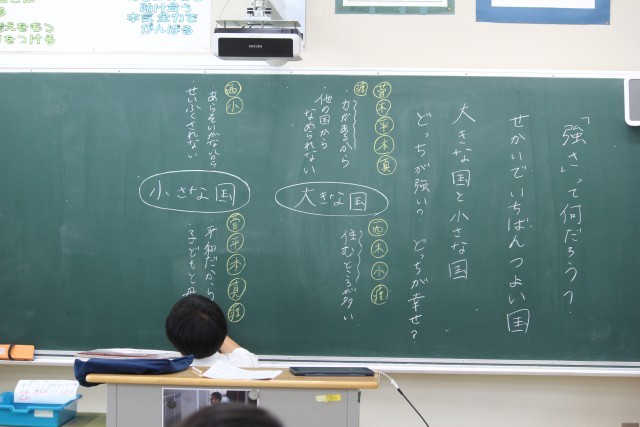 「強さ」って何だろう？
せかいでいちばんつよい国
大きな国と小さな国
どっちが強い？ どっちが幸せ？
菅 木 平 本 真
種
・力があるから
・他の国から
なめられない
大きな国
西 木 小 種
・住むところが多い
西 小
・あらそいがないから
・せいふくされない
小さな国
菅 平 本 真 種
・平和だから
・子どもと
助け合う
本気全力で
がんばる
をつける